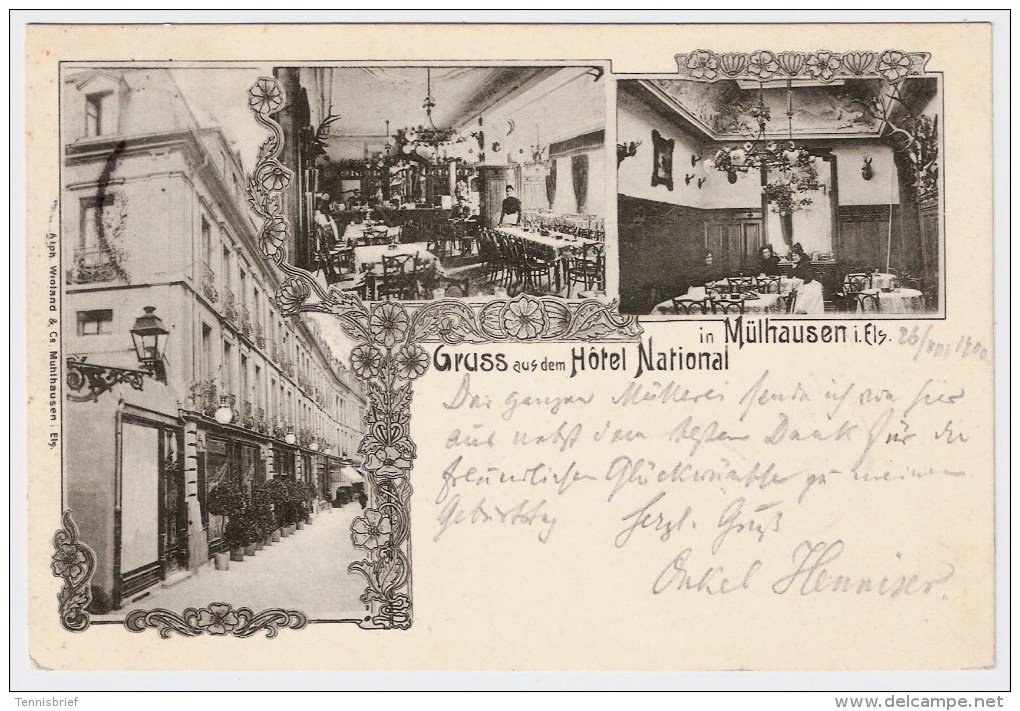 Gruss aus dem Hôtel National
in Mülhausen i. Els.
Der ganzen Müllerei sende ich von hier
aus nebst dem besten Dank für die
freundlichen Glückwünsche zu meinem
Geburtstag herzl. Gruß
Onkel
Alph. Wioland & Co. Mühlhausen i. Els.
Tennisbrief
www.delcampe.net